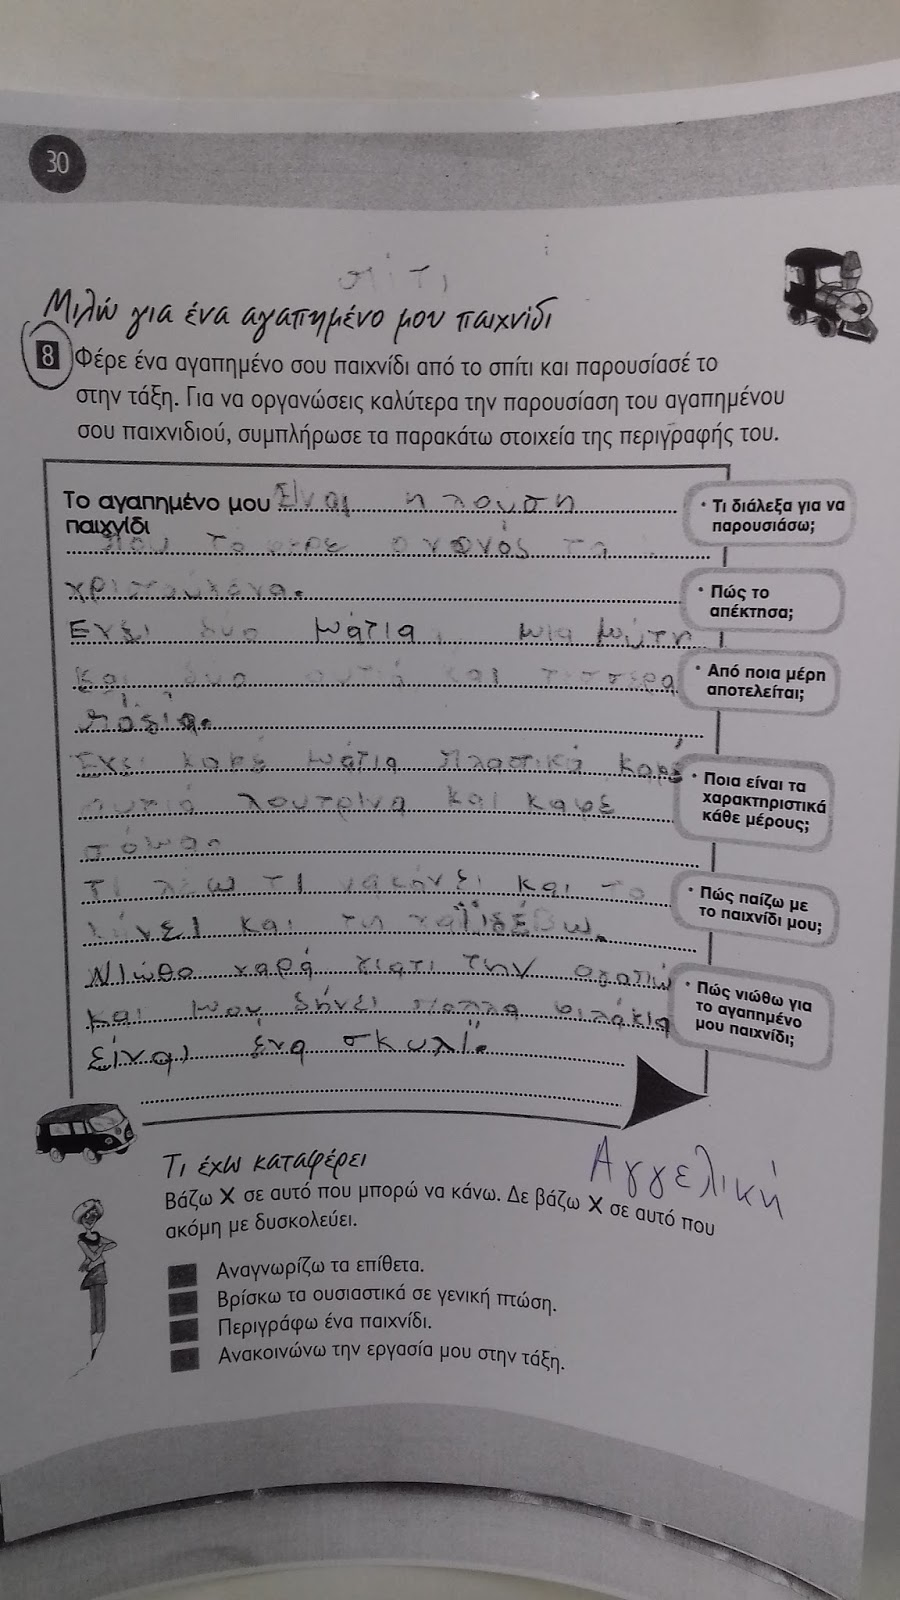 30
σπίτι
Μιλώ για ένα αγαπημένο μου παιχνίδι
8 Φέρε ένα αγαπημένο σου παιχνίδι από το σπίτι και παρουσίασέ το
στην τάξη. Για να οργανώσεις καλύτερα την παρουσίαση του αγαπημένου
σου παιχνιδιού, συμπλήρωσε τα παρακάτω στοιχεία της περιγραφής του.
Το αγαπημένο μου Είναι η λούση
παιχνίδι
• Τι διάλεξα για να
παρουσιάσω;
που το φερε ο νονός τα
χριστούγενα.
• Πώς το
απέκτησα;
Εχει δυο μάτια μια μύτη
και δυο αυτιά και τεσσερα
• Από ποια μέρη
αποτελείται;
πόδια.
Εχει καφέ μάτια πλαστικά καφέ
αυτιά λουτρίνα και καφέ
στόμα.
• Ποια είναι τα
χαρακτηριστικά
κάθε μέρους;
Τι λέω τι να κάνει και το
κάνει και τη χαϊδέβω.
• Πώς παίζω με
το παιχνίδι μου;
Νιώθο χαρά γιατι την αγαπώ
και μου δήνει πολλα φιλάκια
είναι ένα σκυλί.
• Πώς νιώθω για
το αγαπημένο
μου παιχνίδι;
Αγγελική
Τι έχω καταφέρει
Βάζω Χ σε αυτό που μπορώ να κάνω. Δε βάζω Χ σε αυτό που
ακόμη με δυσκολεύει.
Αναγνωρίζω τα επίθετα.
Βρίσκω τα ουσιαστικά σε γενική πτώση.
Περιγράφω ένα παιχνίδι.
Ανακοινώνω την εργασία μου στην τάξη.